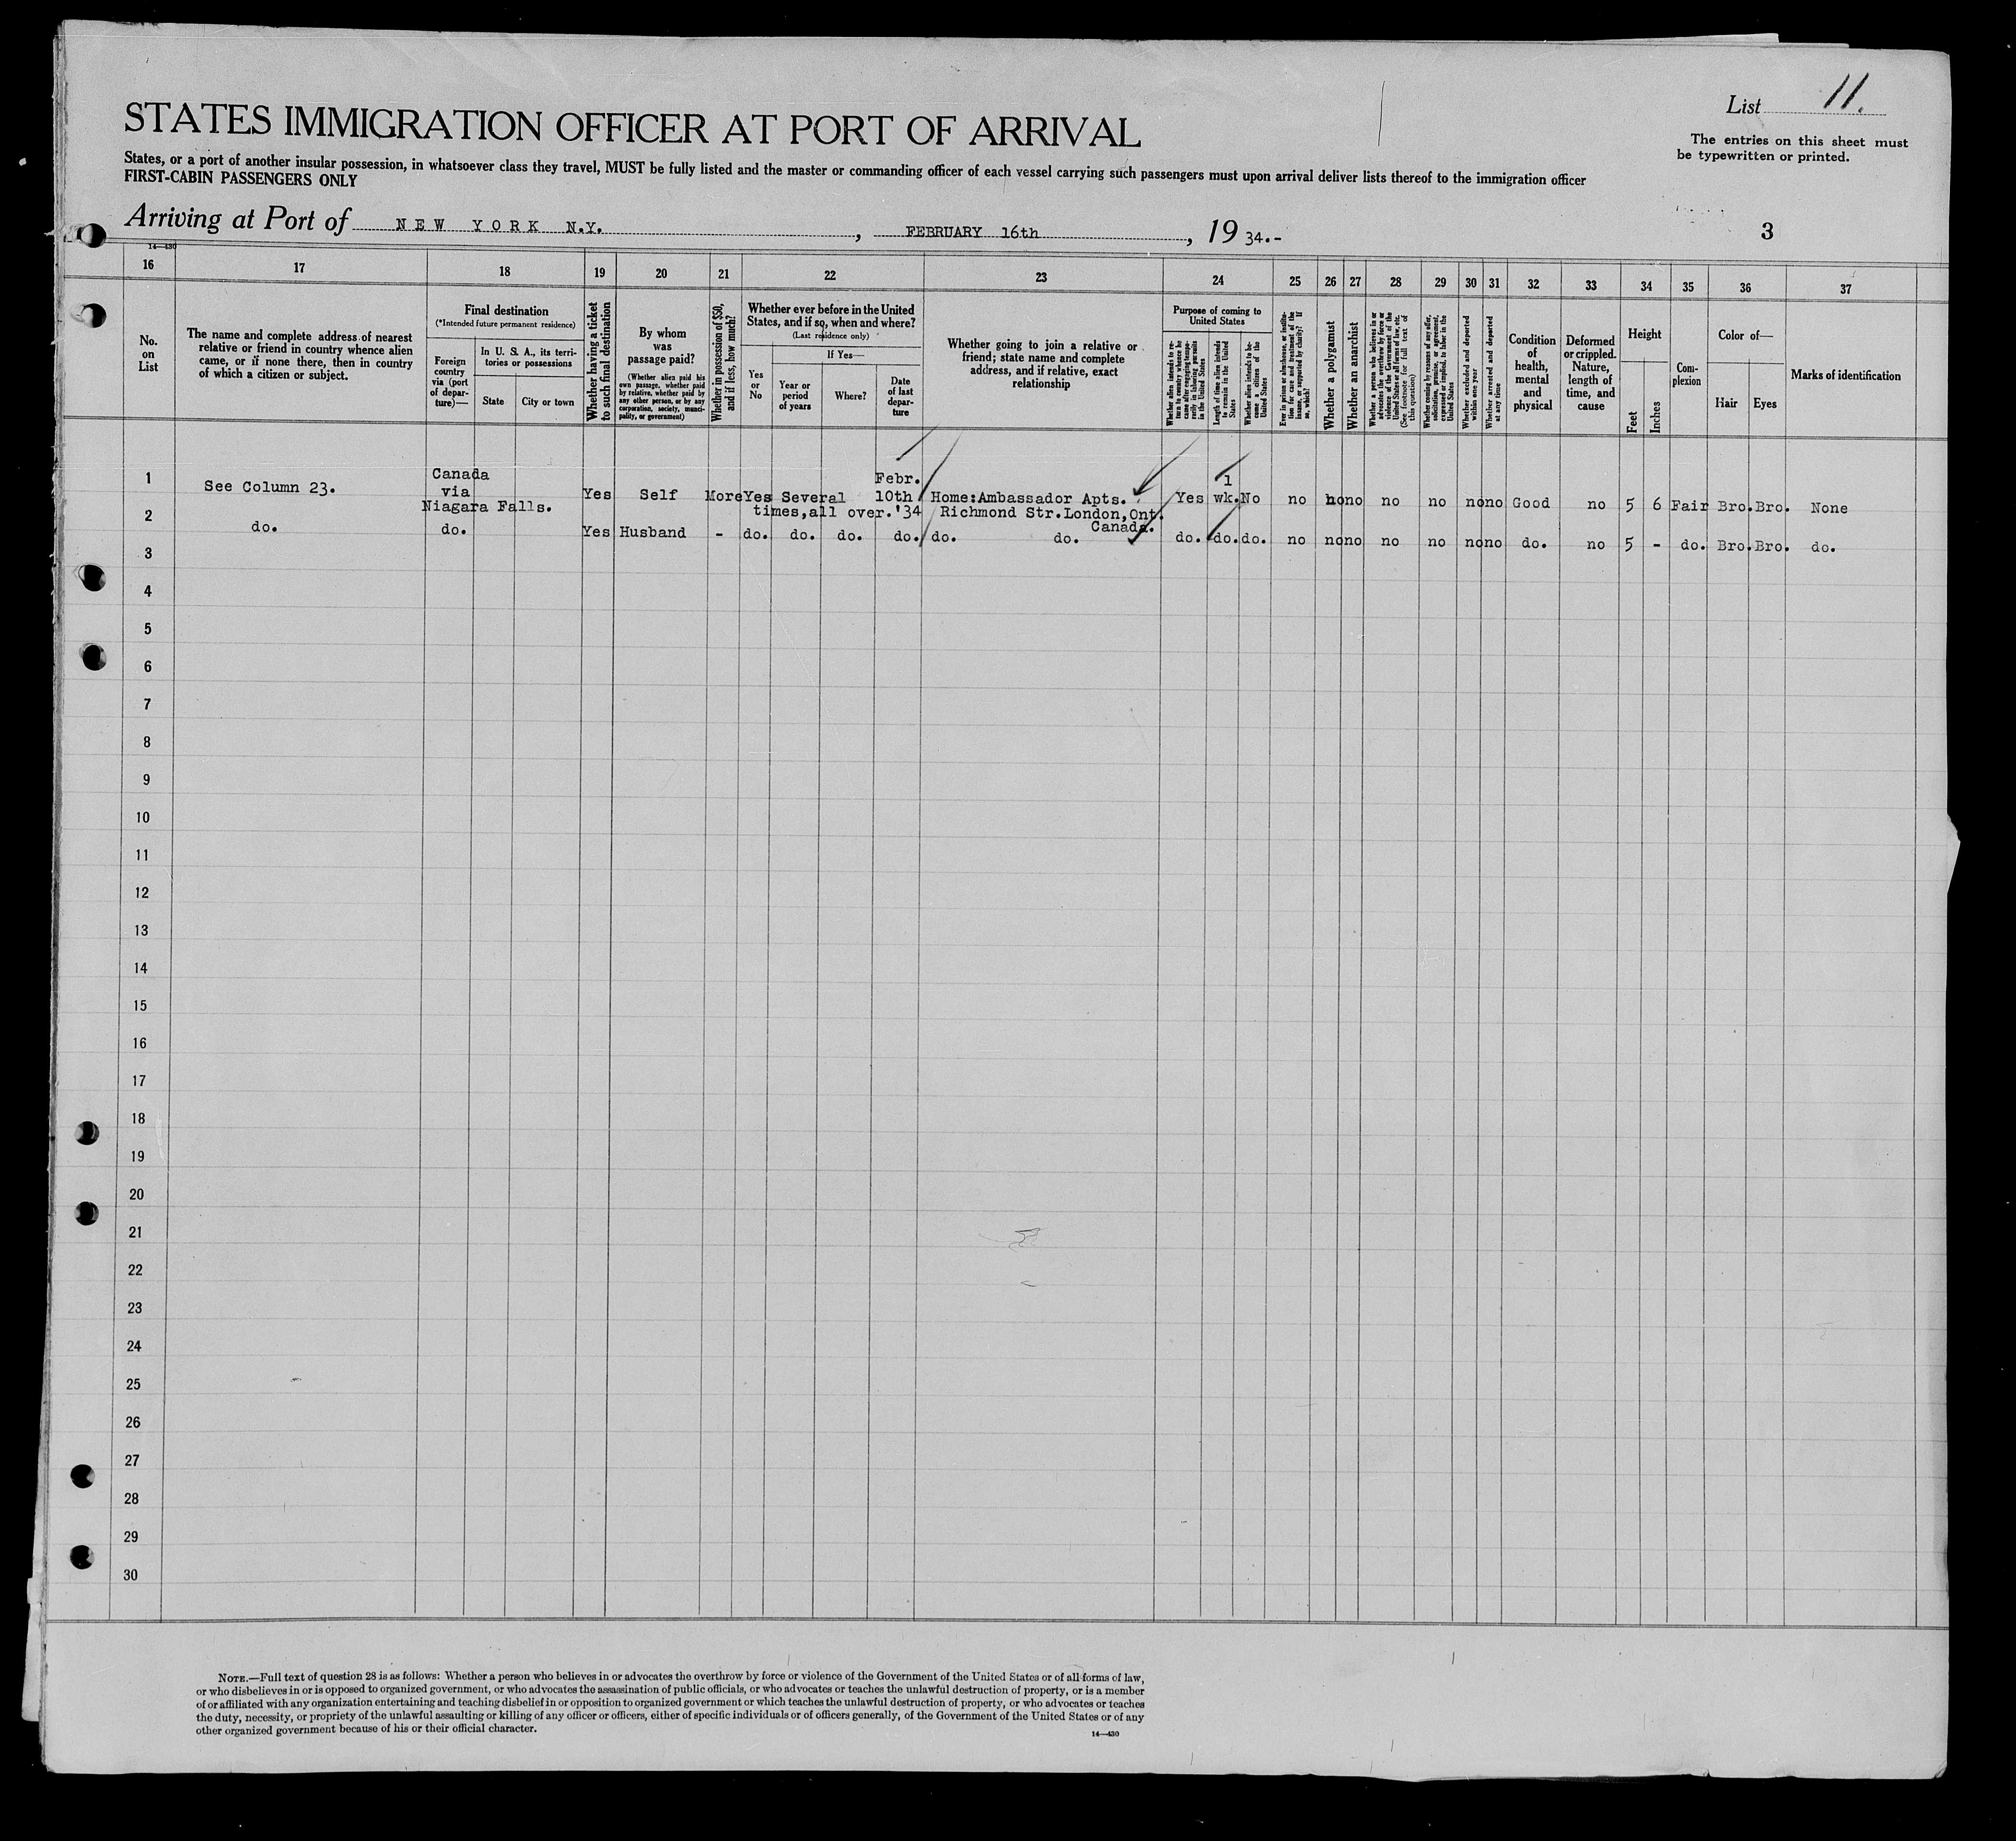 List 11.
STATES IMMIGRATION OFFICER AT PORT OF ARRIVAL
The entries on this sheet must
be typewritten or printed.
States, or a port of another insular possession, in whatsoever class they travel, MUST be fully listed and the master or commanding officer of each vessel carrying such passengers must upon arrival deliver lists thereof to the immigration officer
FIRST-CABIN PASSENGERS ONLY
Arriving at Port of NEW YORK N.Y., FEBRUARY 16th, 19 34.-
3
14—430
16 17 18 19 20 21 22 23 24 25 26 27 28 29 30 31 32 33 34 35 36 37
No.
on
List
The name and complete address of nearest
relative or friend in country whence alien
came, or if none there, then in country
of which a citizen or subject.
Final destination
(*Intended future permanent residence)
Foreign
country
via (port
of depar-
ture)—
In U. S. A., its terri-
tories or possessions
State
City or town
Whether having a ticket
to such final destination
By whom
was
passage paid?
(Whether alien paid his
own passage, whether paid
by relative, whether paid by
any other person, or by any
corporation, society, munici-
pality, or government)
Whether in possession of $50,
and if less, how much?
Whether ever before in the United
States, and if so, when and where?
(Last residence only)
Yes
or
No
If Yes—
Year or
period
of years
Where?
Date
of last
depar-
ture
Whether going to join a relative or
friend; state name and complete
address, and if relative, exact
relationship
Purpose of coming to
United States
Whether alien intends to re-
turn to country whence he
came after engaging tempo-
rarily in laboring pursuits
in the United States
Length of time alien intends
to remain in the United
States
Whether alien intends to be-
come a citizen of the
United States
Ever in prison or almshouse, or institu-
tion for care and treatment of the
insane, or supported by charity? If
so, which?
Whether a polygamist
Whether an anarchist
Whether a person who believes in or
advocates the overthrow by force or
violence of the Government of the
United States or all forms of law, etc.
(See footnote for full text of
this question)
Whether coming by reasons of any offer,
solicitation, promise, or agreement,
expressed or implied, to labor in the
United States
Whether excluded and deported
within one year
Whether arrested and deported
at any time
Condition
of
health,
mental
and
physical
Deformed
or crippled.
Nature,
length of
time, and
cause
Height
Feet
Inches
Com-
plexion
Color of—
Hair
Eyes
Marks of identification
1 See Column 23. Canada
via
Niagara Falls. Yes Self More Yes Several
times,all over. Febr.
10th
'34 Home:Ambassador Apts.
Richmond Str.London,Ont.
Canada. Yes 1
wk. No no no no no no no no Good no 5 6 Fair Bro. Bro. None
2 do. do. Yes Husband - do. do. do. do. do. do. do. do. do. no no no no no no no do. no 5 - do. Bro. Bro. do.
3
4
5
6
7
8
9
10
11
12
13
14
15
16
17
18
19
20
21
22
23
24
25
26
27
28
29
30
NOTE.—Full text of question 28 is as follows: Whether a person who believes in or advocates the overthrow by force or violence of the Government of the United States or of all forms of law,
or who disbelieves in or is opposed to organized government, or who advocates the assassination of public officials, or who advocates or teaches the unlawful destruction of property, or is a member
of or affiliated with any organization entertaining and teaching disbelief in or opposition to organized government or which teaches the unlawful destruction of property, or who advocates or teaches
the duty, necessity, or propriety of the unlawful assaulting or killing of any officer or officers, either of specific individuals or of officers generally, of the Government of the United States or of any
other organized government because of his or their official character.
14—430